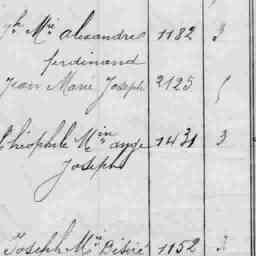 ph Mie alexandre 1182 3
ferdinand
Jean Marie Joseph 2125
théophile Min ange 1431 3
Joseph
Joseph Mie Désiré 1152 3